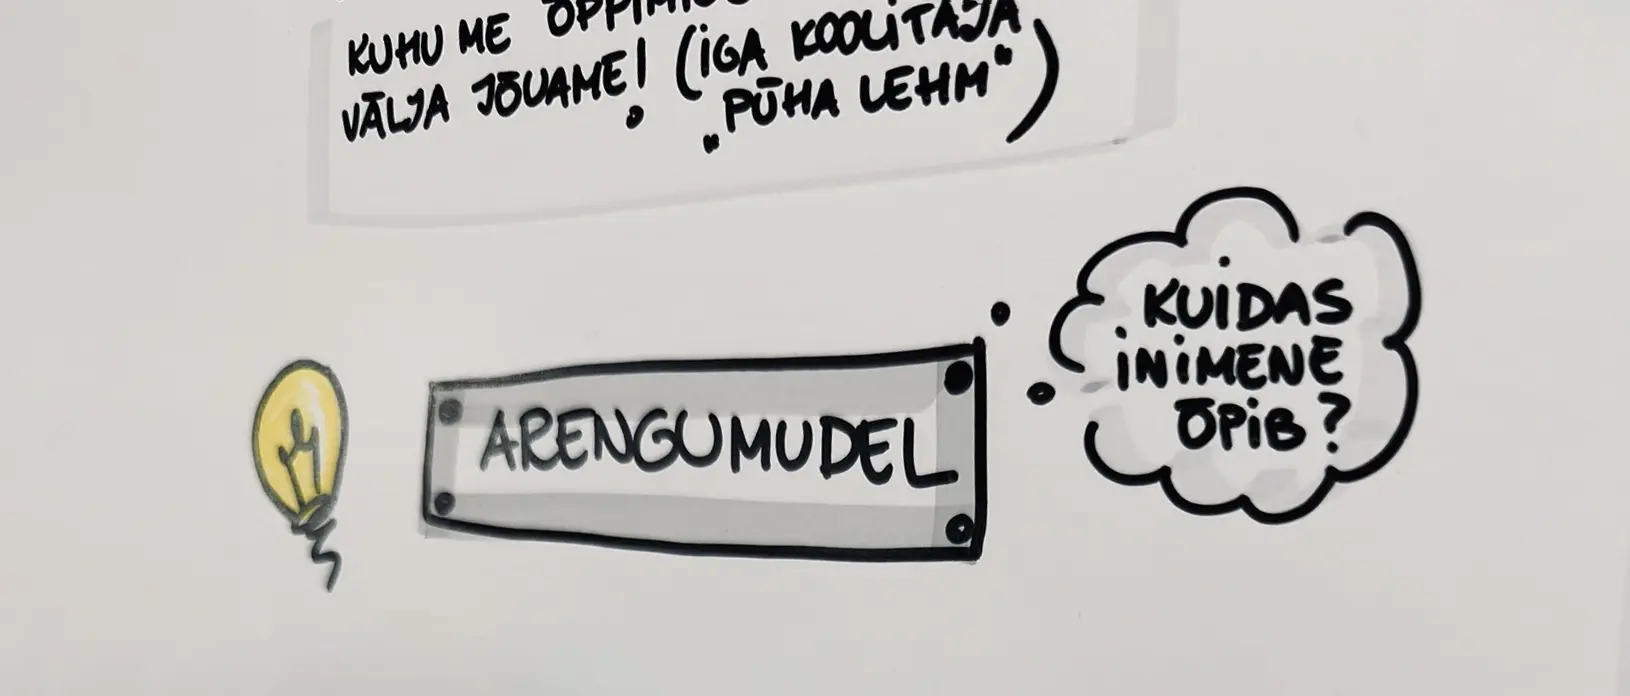 KUHU ME
VÄLJA JÕUAME! (IGA KOOLITAJA
„PÜHA LEHM“)
KUIDAS
INIMENE
ÕPIB?
ARENGUMUDEL